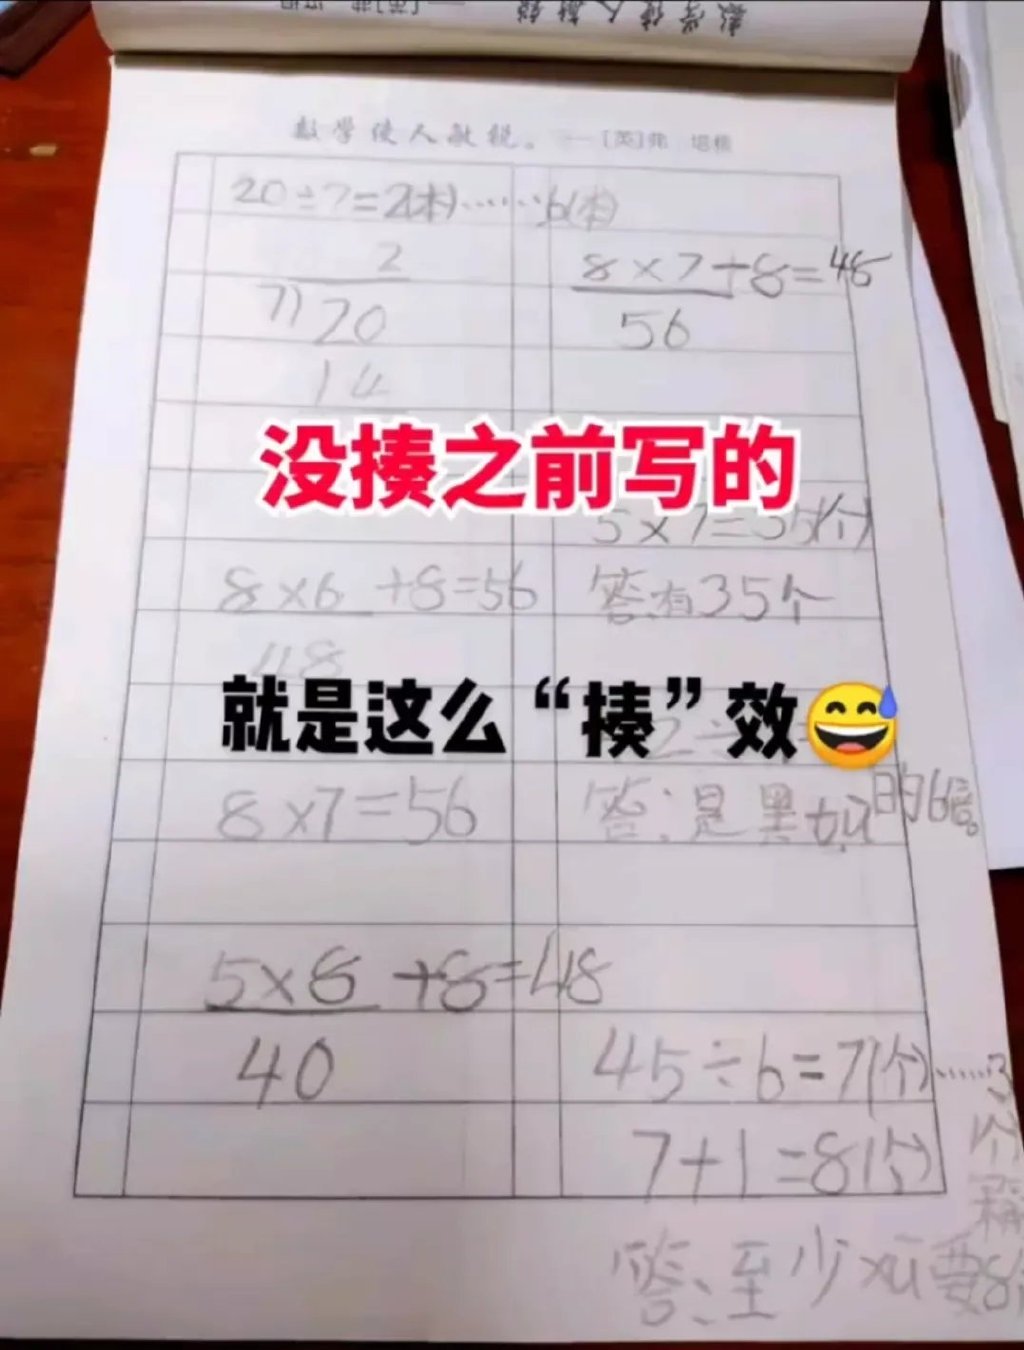 数学使人敏锐。 ——[英]弗 培根
20÷7=2(本)……6(本)
2
7)20
14
8×7+8=48
56
没揍之前写的
5×7=35(个)
8×6+8=56
答:有35个
48
就是这么“揍”效😅
8×7=56
答:是黑 的6倍。
5×8+8=48
40
45÷6=7(个)……3
个
7+1=8(个)
答、至少xū要8